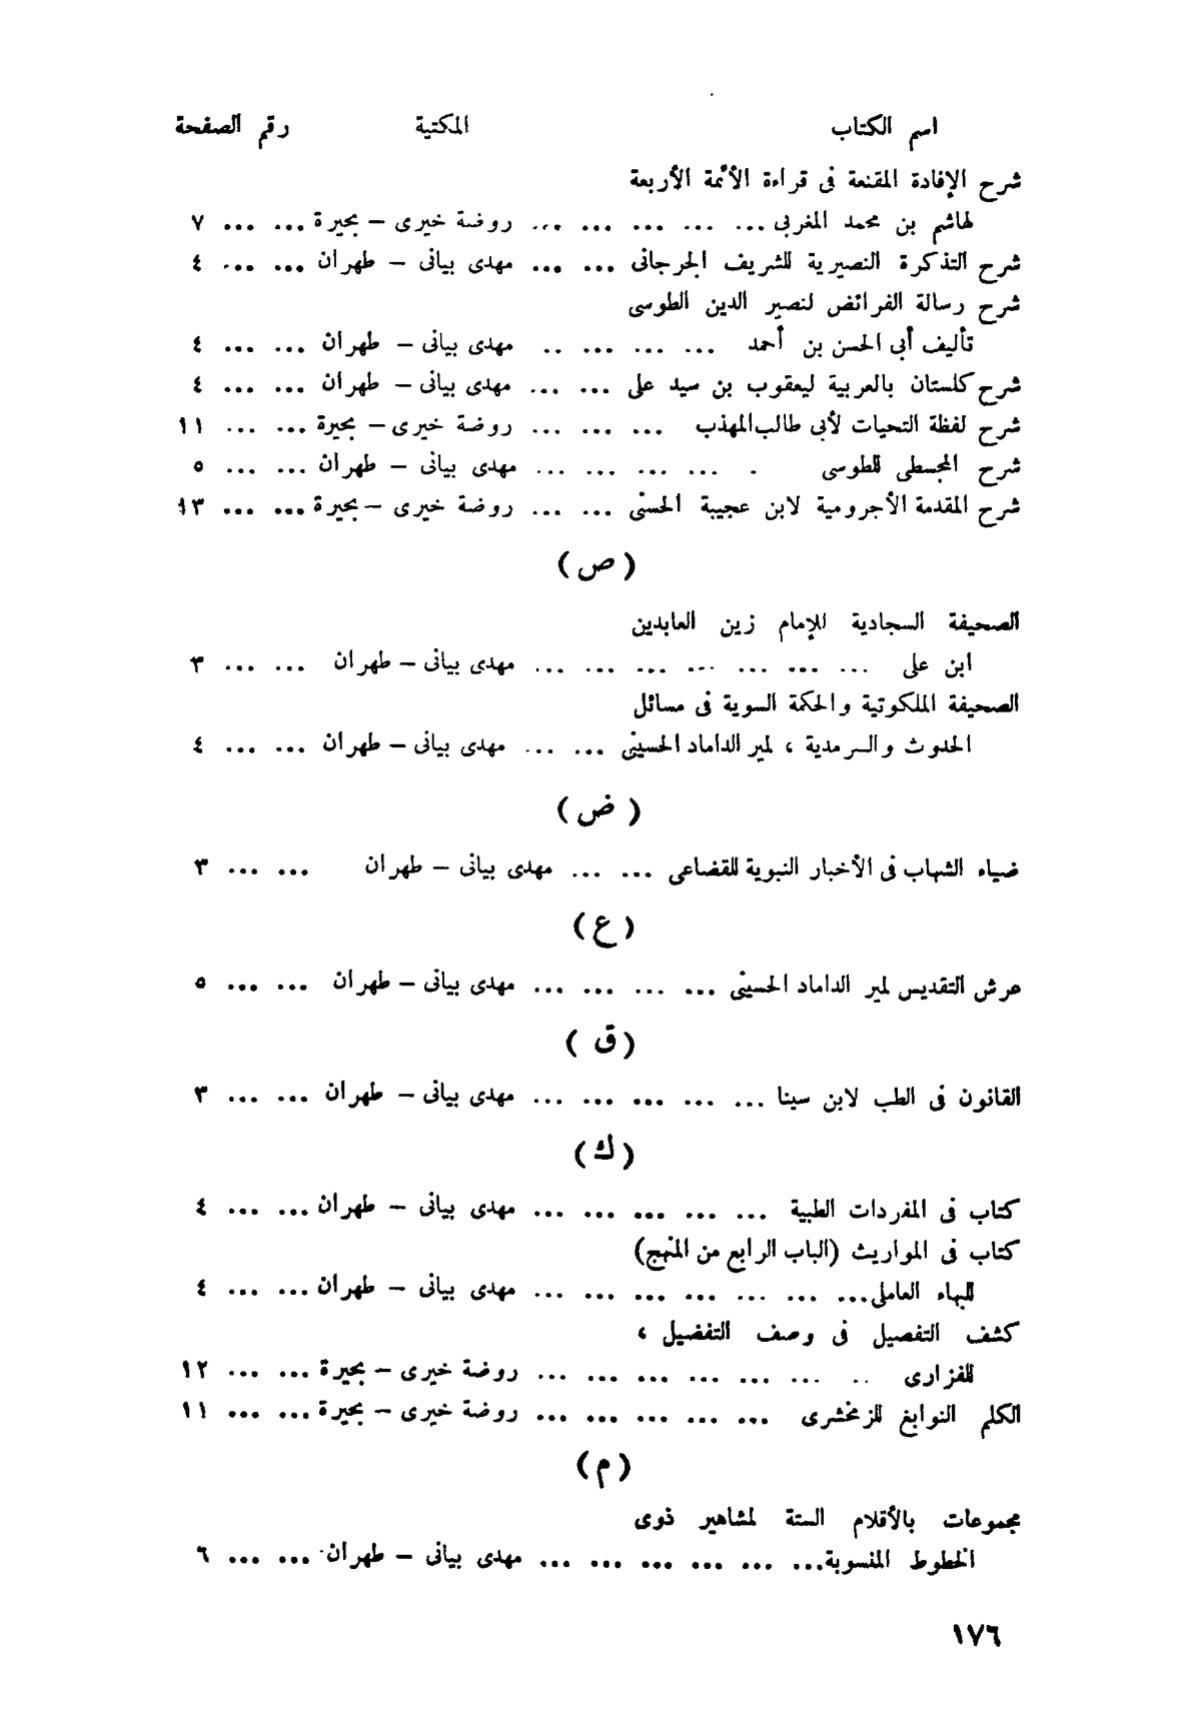 اسم الكتاب المكتبة رقم الصفحة
شرح الإفادة المقنعة فى قراءة الأئمة الأربعة
لهاشم بن محمد المغربى ... ... ... ... ... روضة خيرى – بحيرة ... ... ٧
شرح التذكرة النصيرية للشريف الجرجانى ... ... مهدى بيانى – طهران ... ... ٤
شرح رسالة الفرائض لنصير الدين الطوسى
تأليف أبى الحسن بن أحمد ... ... ... .. مهدى بيانى – طهران ... ... ٤
شرح كلستان بالعربية ليعقوب بن سيد على ... ... مهدى بيانى – طهران ... ... ٤
شرح لفظة التحيات لأبى طالب المهذب ... ... ... روضة خيرى – بحيرة ... ... ١١
شرح المجسطى للطوسى . ... ... ... ... مهدى بيانى – طهران ... ... ٥
شرح المقدمة الأجرومية لابن عجيبة الحسنى ... ... روضة خيرى – بحيرة ... ... ١٣
( ص )
الصحيفة السجادية للإمام زين العابدين
ابن على ... ... ... ... ... ... ... مهدى بيانى – طهران ... ... ٣
الصحيفة الملكوتية والحكمة السوية فى مسائل
الحدوث والسرمدية ، لمير الداماد الحسينى ... ... مهدى بيانى – طهران ... ... ٤
( ض )
ضياء الشهاب فى الأخبار النبوية للقضاعى ... ... مهدى بيانى – طهران ... ... ٣
( ع )
عرش التقديس لمير الداماد الحسينى ... ... ... ... مهدى بيانى – طهران ... ... ٥
( ق )
القانون فى الطب لابن سينا ... ... ... ... ... مهدى بيانى – طهران ... ... ٣
( ك )
كتاب فى المفردات الطبية ... ... ... ... ... مهدى بيانى – طهران ... ... ٤
كتاب فى المواريث (الباب الرابع من المنهج)
للبهاء العاملى ... ... ... ... ... ... ... مهدى بيانى – طهران ... ... ٤
كشف التفصيل فى وصف التفضيل ،
للفزارى .. ... ... ... ... ... ... روضة خيرى – بحيرة ... ... ١٢
الكلم النوابغ للزمخشرى ... ... ... ... ... روضة خيرى – بحيرة ... ... ١١
( م )
مجموعات بالأقلام الستة لمشاهير ذوى
الخطوط المنسوبة ... ... ... ... ... ... مهدى بيانى – طهران ... ... ٦
١٧٦